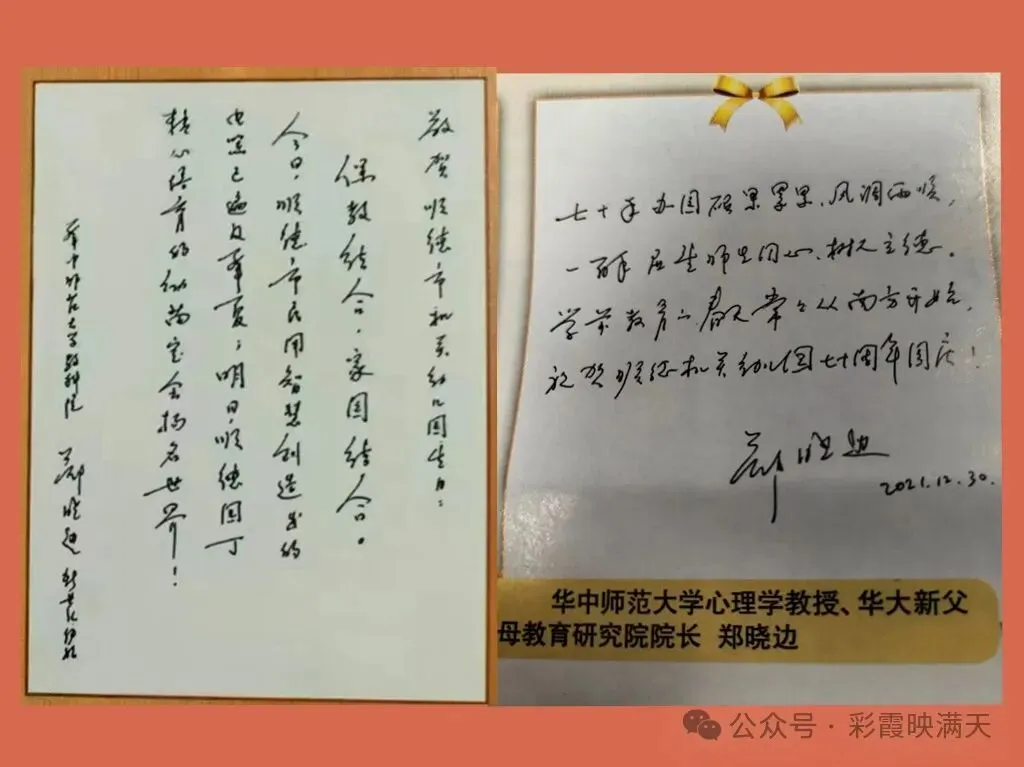 敬贺顺德市机关幼儿园生日:
保教结合,家园结合。
今日,顺德市民用智慧创造出的
电器已遍及华夏;明日,顺德园丁
精心培育的幼苗定会扬名世界!
华中师范大学教科院 郑晓边 新世纪伊始
七十年办园硕果累累,风调雨顺,
师生同心,树人立德。
学前教育的春天常常从南方开始,
祝贺顺德机关幼儿园七十周年园庆!
郑晓边
2021.12.30.
华中师范大学心理学教授、华大新父
母教育研究院院长 郑晓边
公众号·彩霞映满天